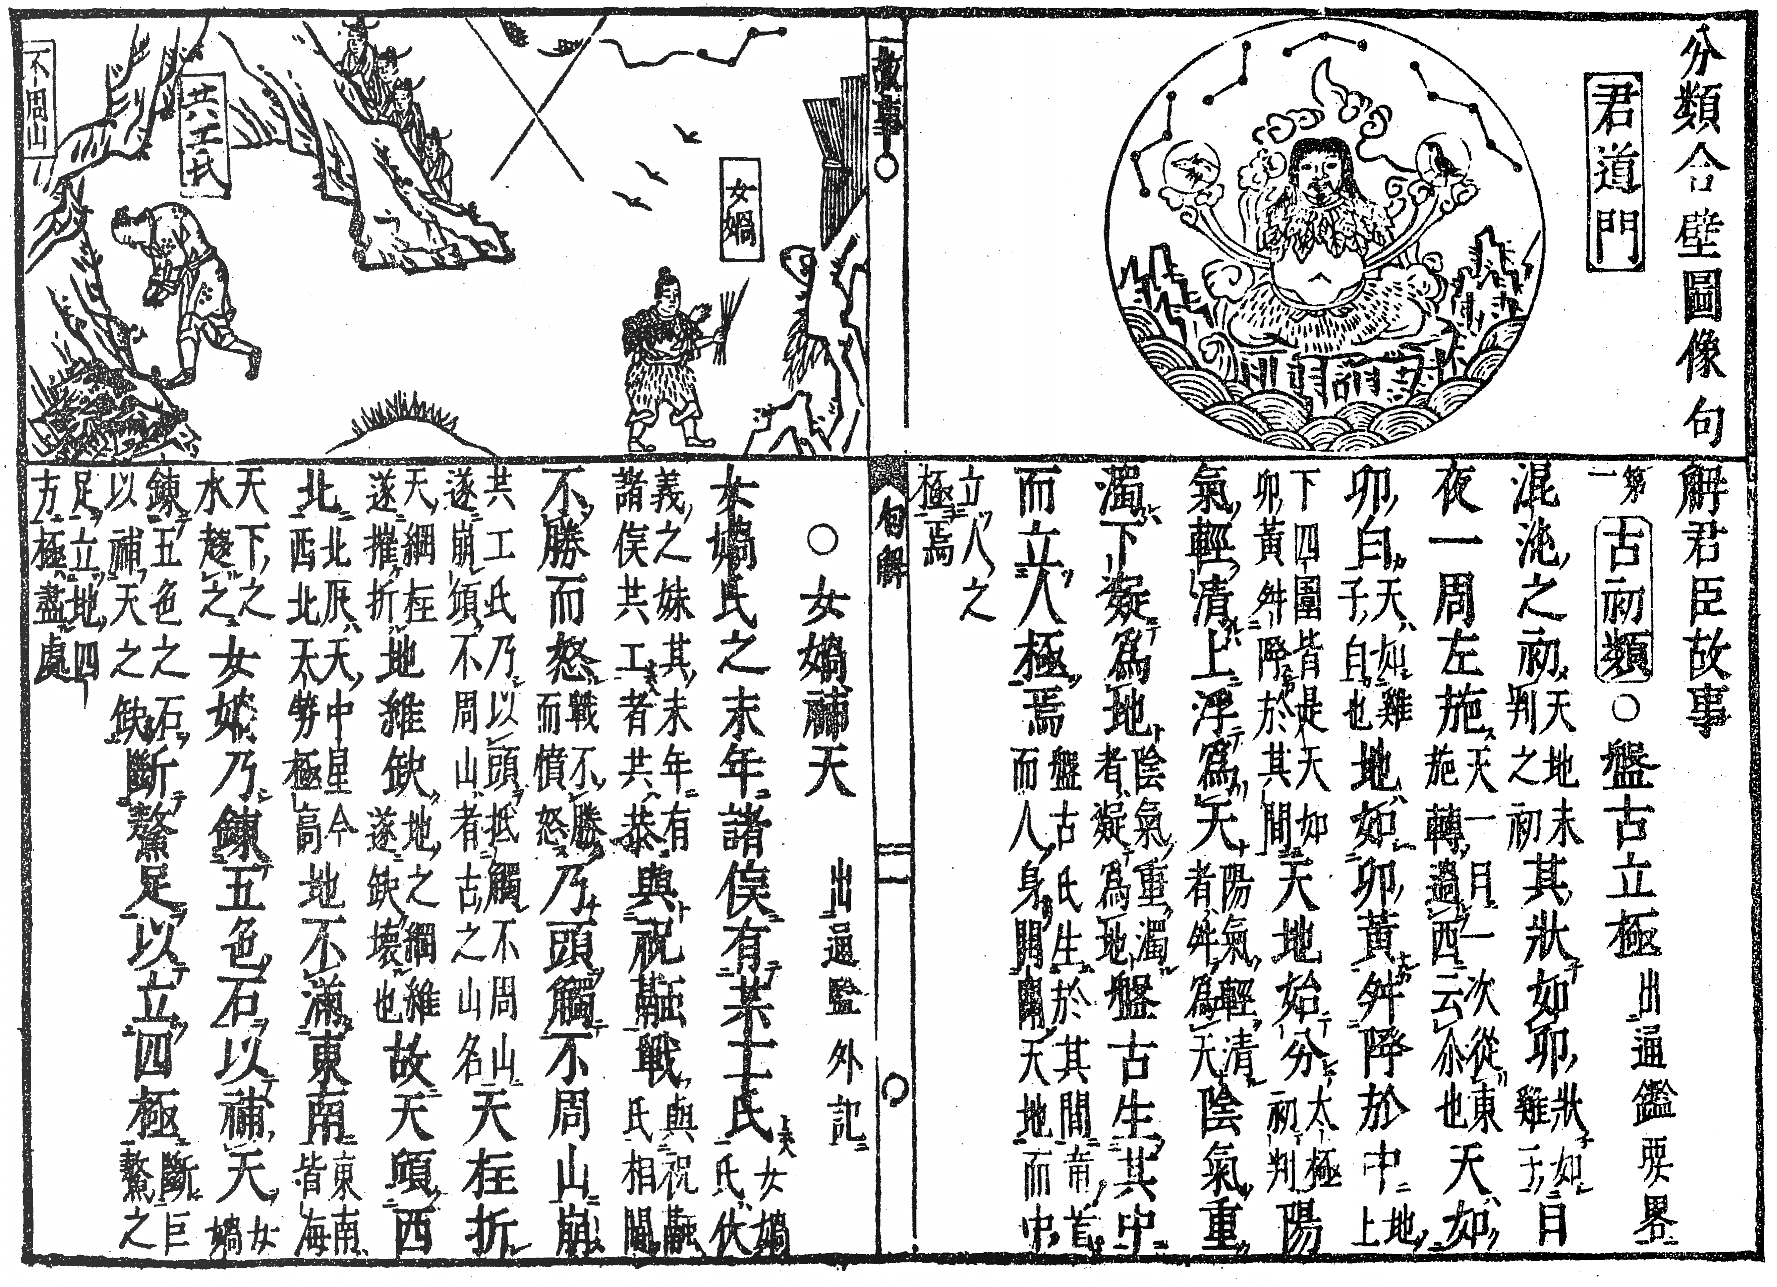 分類合璧圖像句解君臣故事
君道門
第一 古初類 ○盤古立極 出通鑑要畧
混沌之初 天地未判之初 其狀如卵 狀如雞子 日
夜一周左施 天一日一次從東施轉過西云尒也 天如
卵白 天如雞子自也 地如卵黃舛降於中 地上
下四圍皆是天如卵黃舛降於其間 天地始分 太極初判 陽
氣輕清上浮為天 陽氣輕清者舛為天 陰氣重
濁下凝為地 陰氣重濁者凝為地 盤古生其中
而立人極焉 盤古氏生於其間帝首而人身開闢天地而中
立人之極焉
故事
句解
女媧
共工氏
不周山
○女媧補天 出通鑑外記
女媧氏之末年諸侯有共工氏 女媧氏伏
義之妹其末年有諸侯共工者共恭 與祝融戰 與祝融氏相鬪
不勝而怒 戰不勝而憤怒 乃頭觸不周山崩
共工氏乃以頭抵觸不周山遂崩頹不周山者古之山名 天柱折
天綱柱遂摧折 地維缺 地之綱維遂缺壞也 故天頃西
北 北辰天中星今西北太勞極高 地不滿東南 東南皆海
天下之水趍之 女媧乃鍊五色石以補天 女媧
鍊五色之石以補天之缺 斷鰲足以立四極 斷巨鰲之
足立地四方極盡處